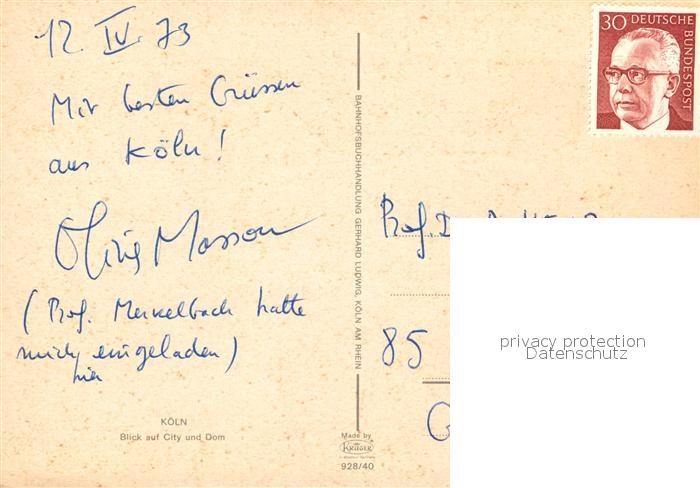 12. IV. 73
Mit besten Grüssen
aus Köln!
Olivier Masson
(Prof. Merkelbach hatte
mich eingeladen)
hier
KÖLN
Blick auf City und Dom
BAHNHOFSBUCHHANDLUNG GERHARD LUDWIG, KÖLN AM RHEIN
Made by
KRÜGER
928/40
30 DEUTSCHE
BUNDESPOST
Prof. D
85
privacy protection
Datenschutz